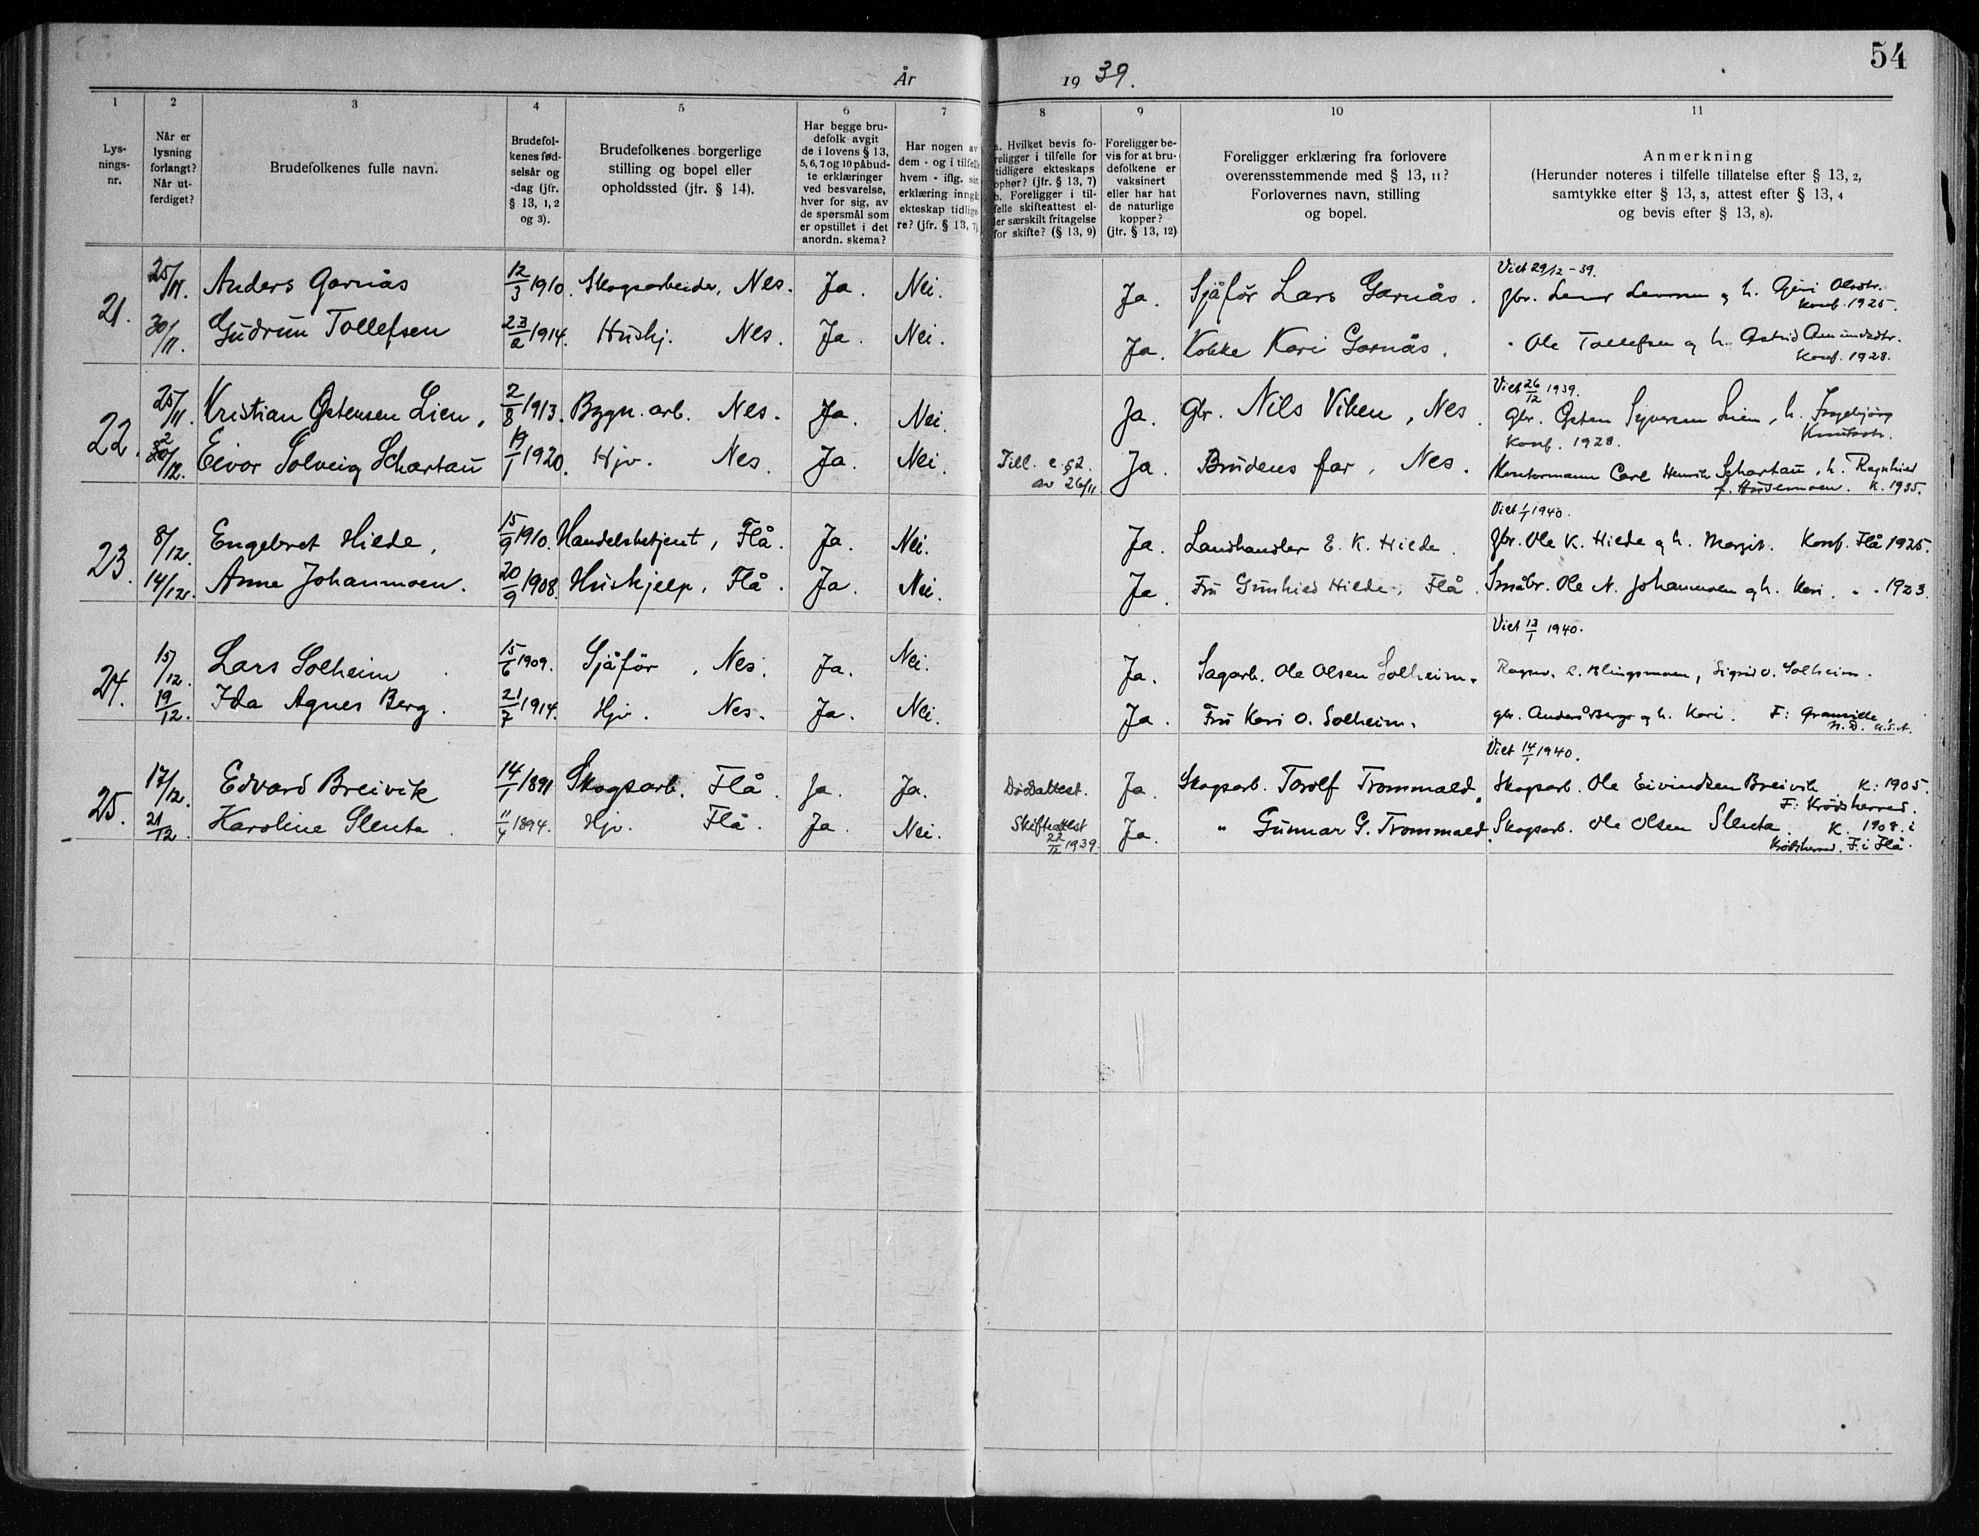 54
År 1939.
1 2 3 4 5 6 7 8 9 10 11
Lys-
nings-
nr.
Når er
lysning
forlangt?
Når ut-
ferdiget?
Brudefolkenes fulle navn.
Brudefol-
kenes fød-
selsår og
-dag (jfr.
§ 13, 1, 2
og 3).
Brudefolkenes borgerlige
stilling og bopel eller
opholdssted (jfr. § 14).
Har begge bru-
defolk avgit
de i lovens § 13,
5, 6, 7 og 10 påbud-
te erklæringer
ved besvarelse,
hver for sig, av
de spørsmål som
er opstillet i det
anordn. skema?
Har nogen av
dem - og i tilfelle
hvem - iflg. sin
erklæring inngå
ekteskap tidlige-
re? (jfr. § 13, 7)
a. Hvilket bevis fo-
religger i tilfelle for
tidligere ekteskaps
ophør? (jfr. § 13, 7)
b. Foreligger i til-
felle skifteattest el-
ler særskilt fritagelse
for skifte? (§ 13, 9)
Foreligger be-
vis for at bru-
defolkene er
vaksinert
eller har hat
de naturlige
kopper?
(jfr. § 13, 12)
Foreligger erklæring fra forlovere
overensstemmende med § 13, 11?
Forlovernes navn, stilling
og bopel.
Anmerkning
(Herunder noteres i tilfelle tillatelse efter § 13, 2,
samtykke efter § 13, 3, attest efter § 13, 4
og bevis efter § 13, 8).
Viet 29/12 - 39.
21. 25/11 Anders Garnås 12/3 1910. Skogsarbeider, Nes. Ja. Nei. Ja. Sjåfør Lars Garnås. gbr. og h. Olsdtr.
Konf. 1925.
30/11. Gudrun Tollefsen 23/2 1914. Hushj. Nes. Ja. Nei. Ja. Kokke Kari Garnås. " Ole Tollefsen og h. Astrid Amundsdtr.
Konf. 1928.
Viet 26/12 1939.
22. 25/11. Kristian Østensen Lien, 2/8 1913. Bygn. arb. Nes. Ja. Nei. Ja. Gbr. Nils Viken, Nes. Gbr. Østen Syversen Lien, h. Ingebjørg
Knutsdtr.
Konf. 1928.
2/12. Eivor Solveig Schartau 19/1 1920. Hjv. Nes. Ja. Nei. Till. e. § 2 Ja. Brudens far, Nes. Kontormann Carl Henrik Schartau, h. Ragnhild
av 26/11 f. Husemoen. K. 1935.
Viet 1/1 1940.
23. 8/12. Engebret Hilde, 15/9 1910. Handelsbetjent, Flå. Ja. Nei. Ja. Landhandler E. K. Hilde. Gbr. Ole K. Hilde og h. Margit. Konf. Flå 1925.
14/12. Anne Johannmoen. 20/9 1908. Hushjelp, Flå. Ja. Nei. Ja. Fru Gunhild Hilde, Flå. Småbr. Ole N. Johannmoen og h. Kari. " " 1923.
Viet 13/1 1940.
24. 15/12. Lars Solheim 15/6 1909. Sjåfør, Nes. Ja. Nei. Ja. Sagarb. Ole Olsen Solheim. Sigrid O. Solheim.
19/12. Ida Agnes Berg. 21/7 1914. Hjv. Nes. Ja. Nei. Ja. Fru Kari O. Solheim. gbr. og h. Kari. F: Granville
N.D. U.S.A.
Viet 14/1 1940.
25. 17/12. Edvard Breivik 14/1 1891 Skogsarb. Flå. Ja. Ja. Dødsattest. Ja. Skogsarb. Torolf Trommald. Skogsarb. Ole Eivindsen Breivik. K: 1905.
F: Krødsherred.
21/12 Karoline Slenta. 11/4 1894. Hjv. Flå. Ja. Nei. Skifteattest Ja. " Gunnar G. Trommald. Skogsarb. Ole Olsen Slenta. K. 1908. i
22/12 1939. Krødsherred. F. i Flå.